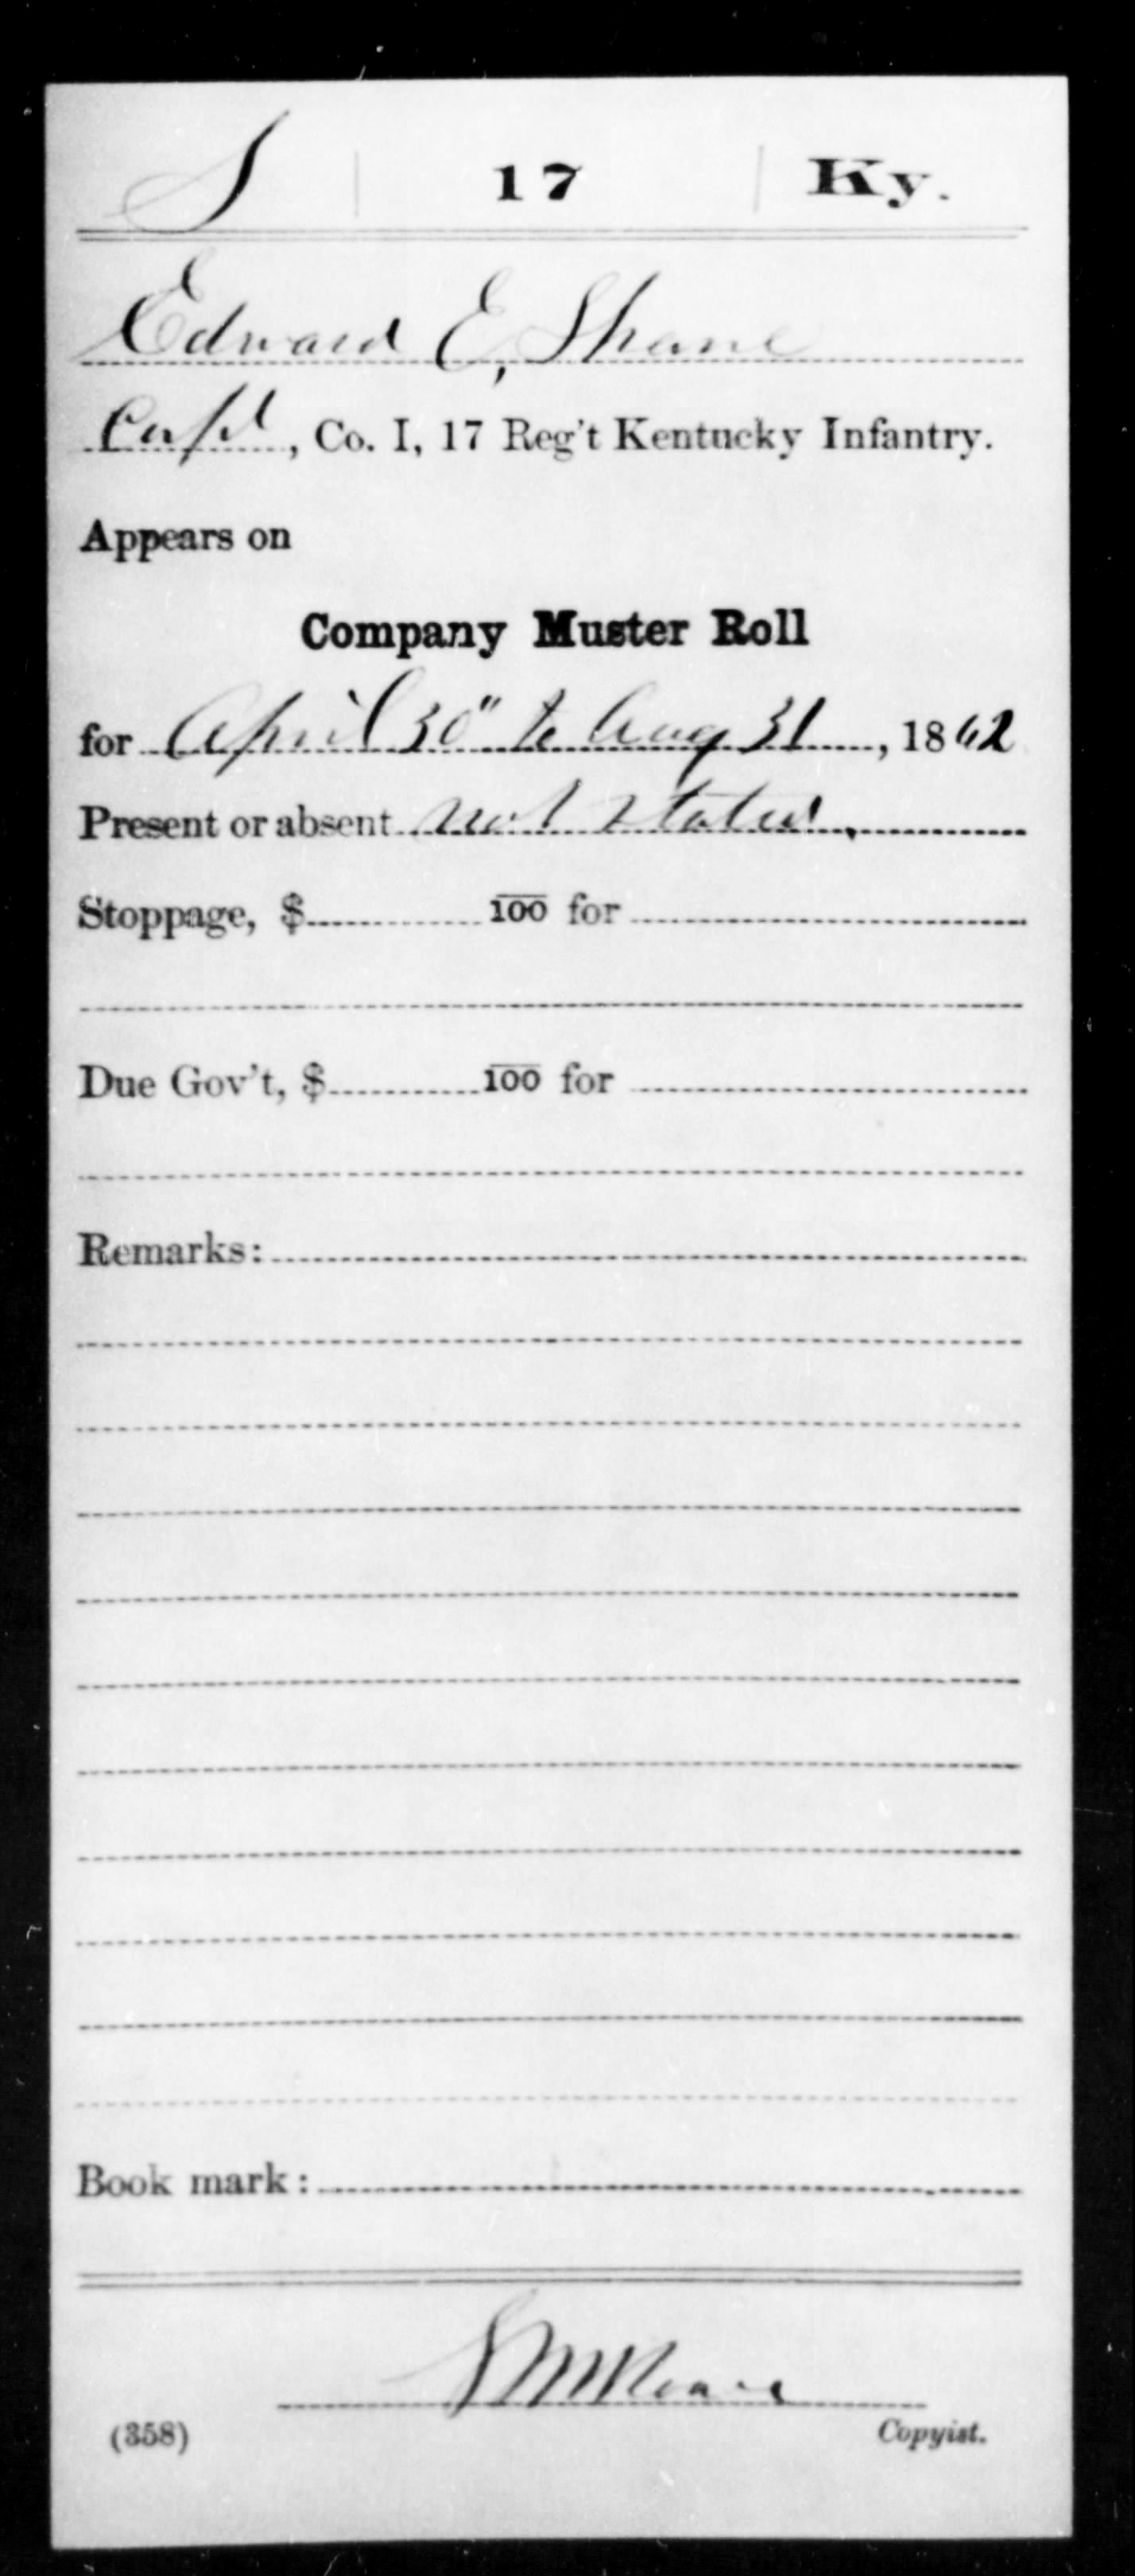 S | 17 | Ky.
Edward E, Shane
Capt, Co. I, 17 Reg't Kentucky Infantry.
Appears on
Company Muster Roll
for April 30" to Aug 31, 1862
Present or absent not stated.
Stoppage, $ 100 for
Due Gov't, $ 100 for
Remarks:
Book mark:
(358)
Copyist.